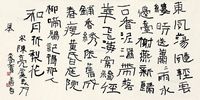 東風蕩颺輕雲
縷時送蕭蕭雨水
邊臺榭燕新歸一
口香泥濕帶落
花飛海棠糝徑
鋪香繡依舊成
春瘦黃昏庭院
柳啼鴉記得那人
和月折梨花
宋陳亮虞美人